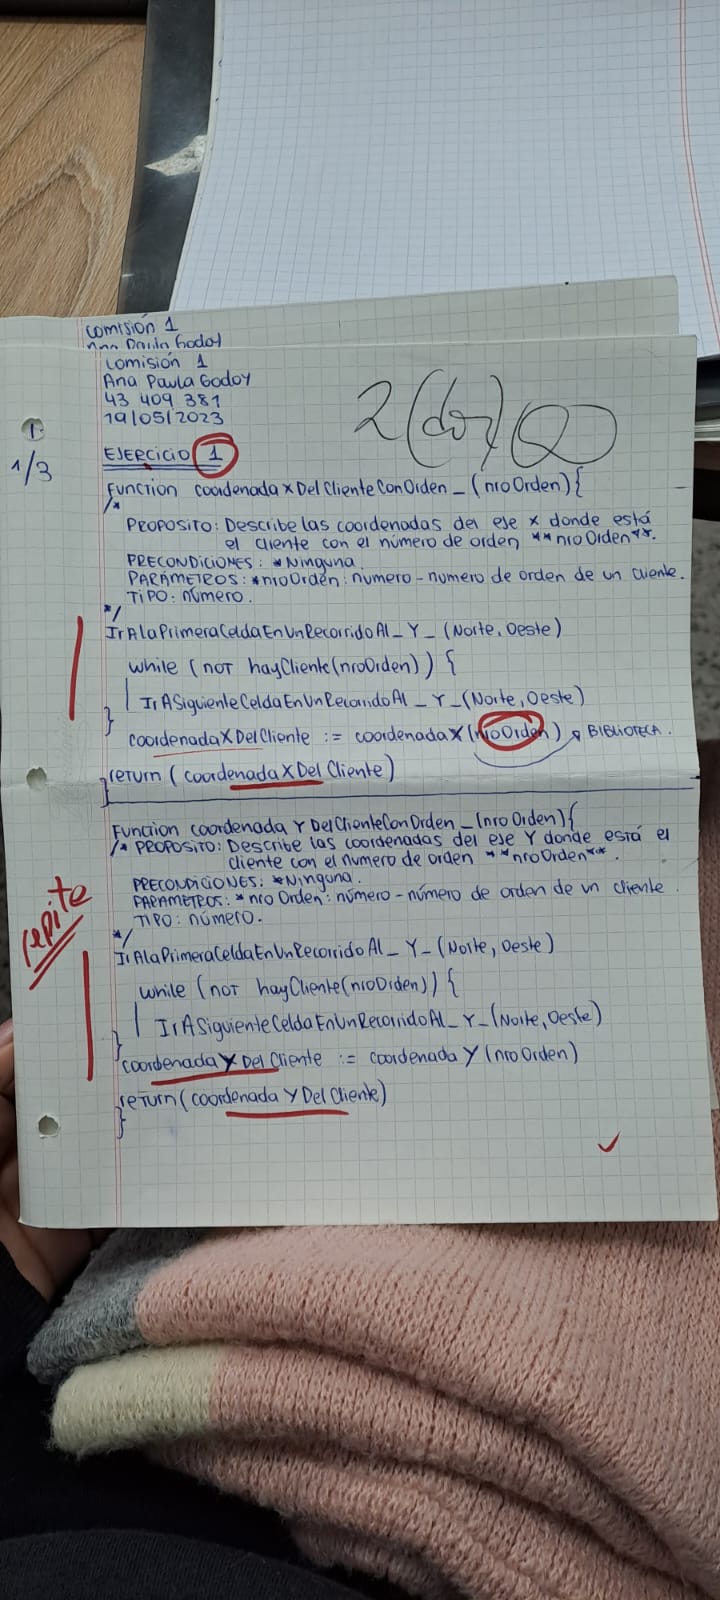 comisión 1
Ana Paula Godoy
comisión 1
Ana Paula Godoy
43 409 381
19/05/2023
2 (dos)
1/3
EJERCICIO 1
Function coordenadaXDelClienteConOrden_(nroOrden){
/*
PROPOSITO: Describe las coordenadas del eje x donde está
el cliente con el número de orden **nroOrden**.
PRECONDICIONES: *Ninguna.
PARÁMETROS: *nroOrden: numero - numero de orden de un cliente.
TIPO: número.
*/
IrAlaPrimeraCeldaEnUnRecorridoAl_Y_(Norte, Oeste)
while (not hayCliente(nroOrden)) {
IrASiguienteCeldaEnUnRecorridoAl_Y_(Norte, Oeste)
}
coordenadaXDelCliente := coordenadaX(nroOrden) BIBLIOTECA.
return (coordenadaXDelCliente)
}
Function coordenadaYDelClienteConOrden_(nroOrden){
/* PROPOSITO: Describe las coordenadas del eje Y donde está el
cliente con el numero de orden **nroOrden**.
repite
PRECONDICIONES: *Ninguna.
PARAMETROS: *nroOrden: número - número de orden de un cliente.
TIPO: número.
*/
IrAlaPrimeraCeldaEnUnRecorridoAl_Y_(Norte, Oeste)
while (not hayCliente(nroOrden)) {
IrASiguienteCeldaEnUnRecorridoAl_Y_(Norte, Oeste)
}
coordenadaYDelCliente := coordenadaY(nroOrden)
return(coordenadaYDelCliente)
}